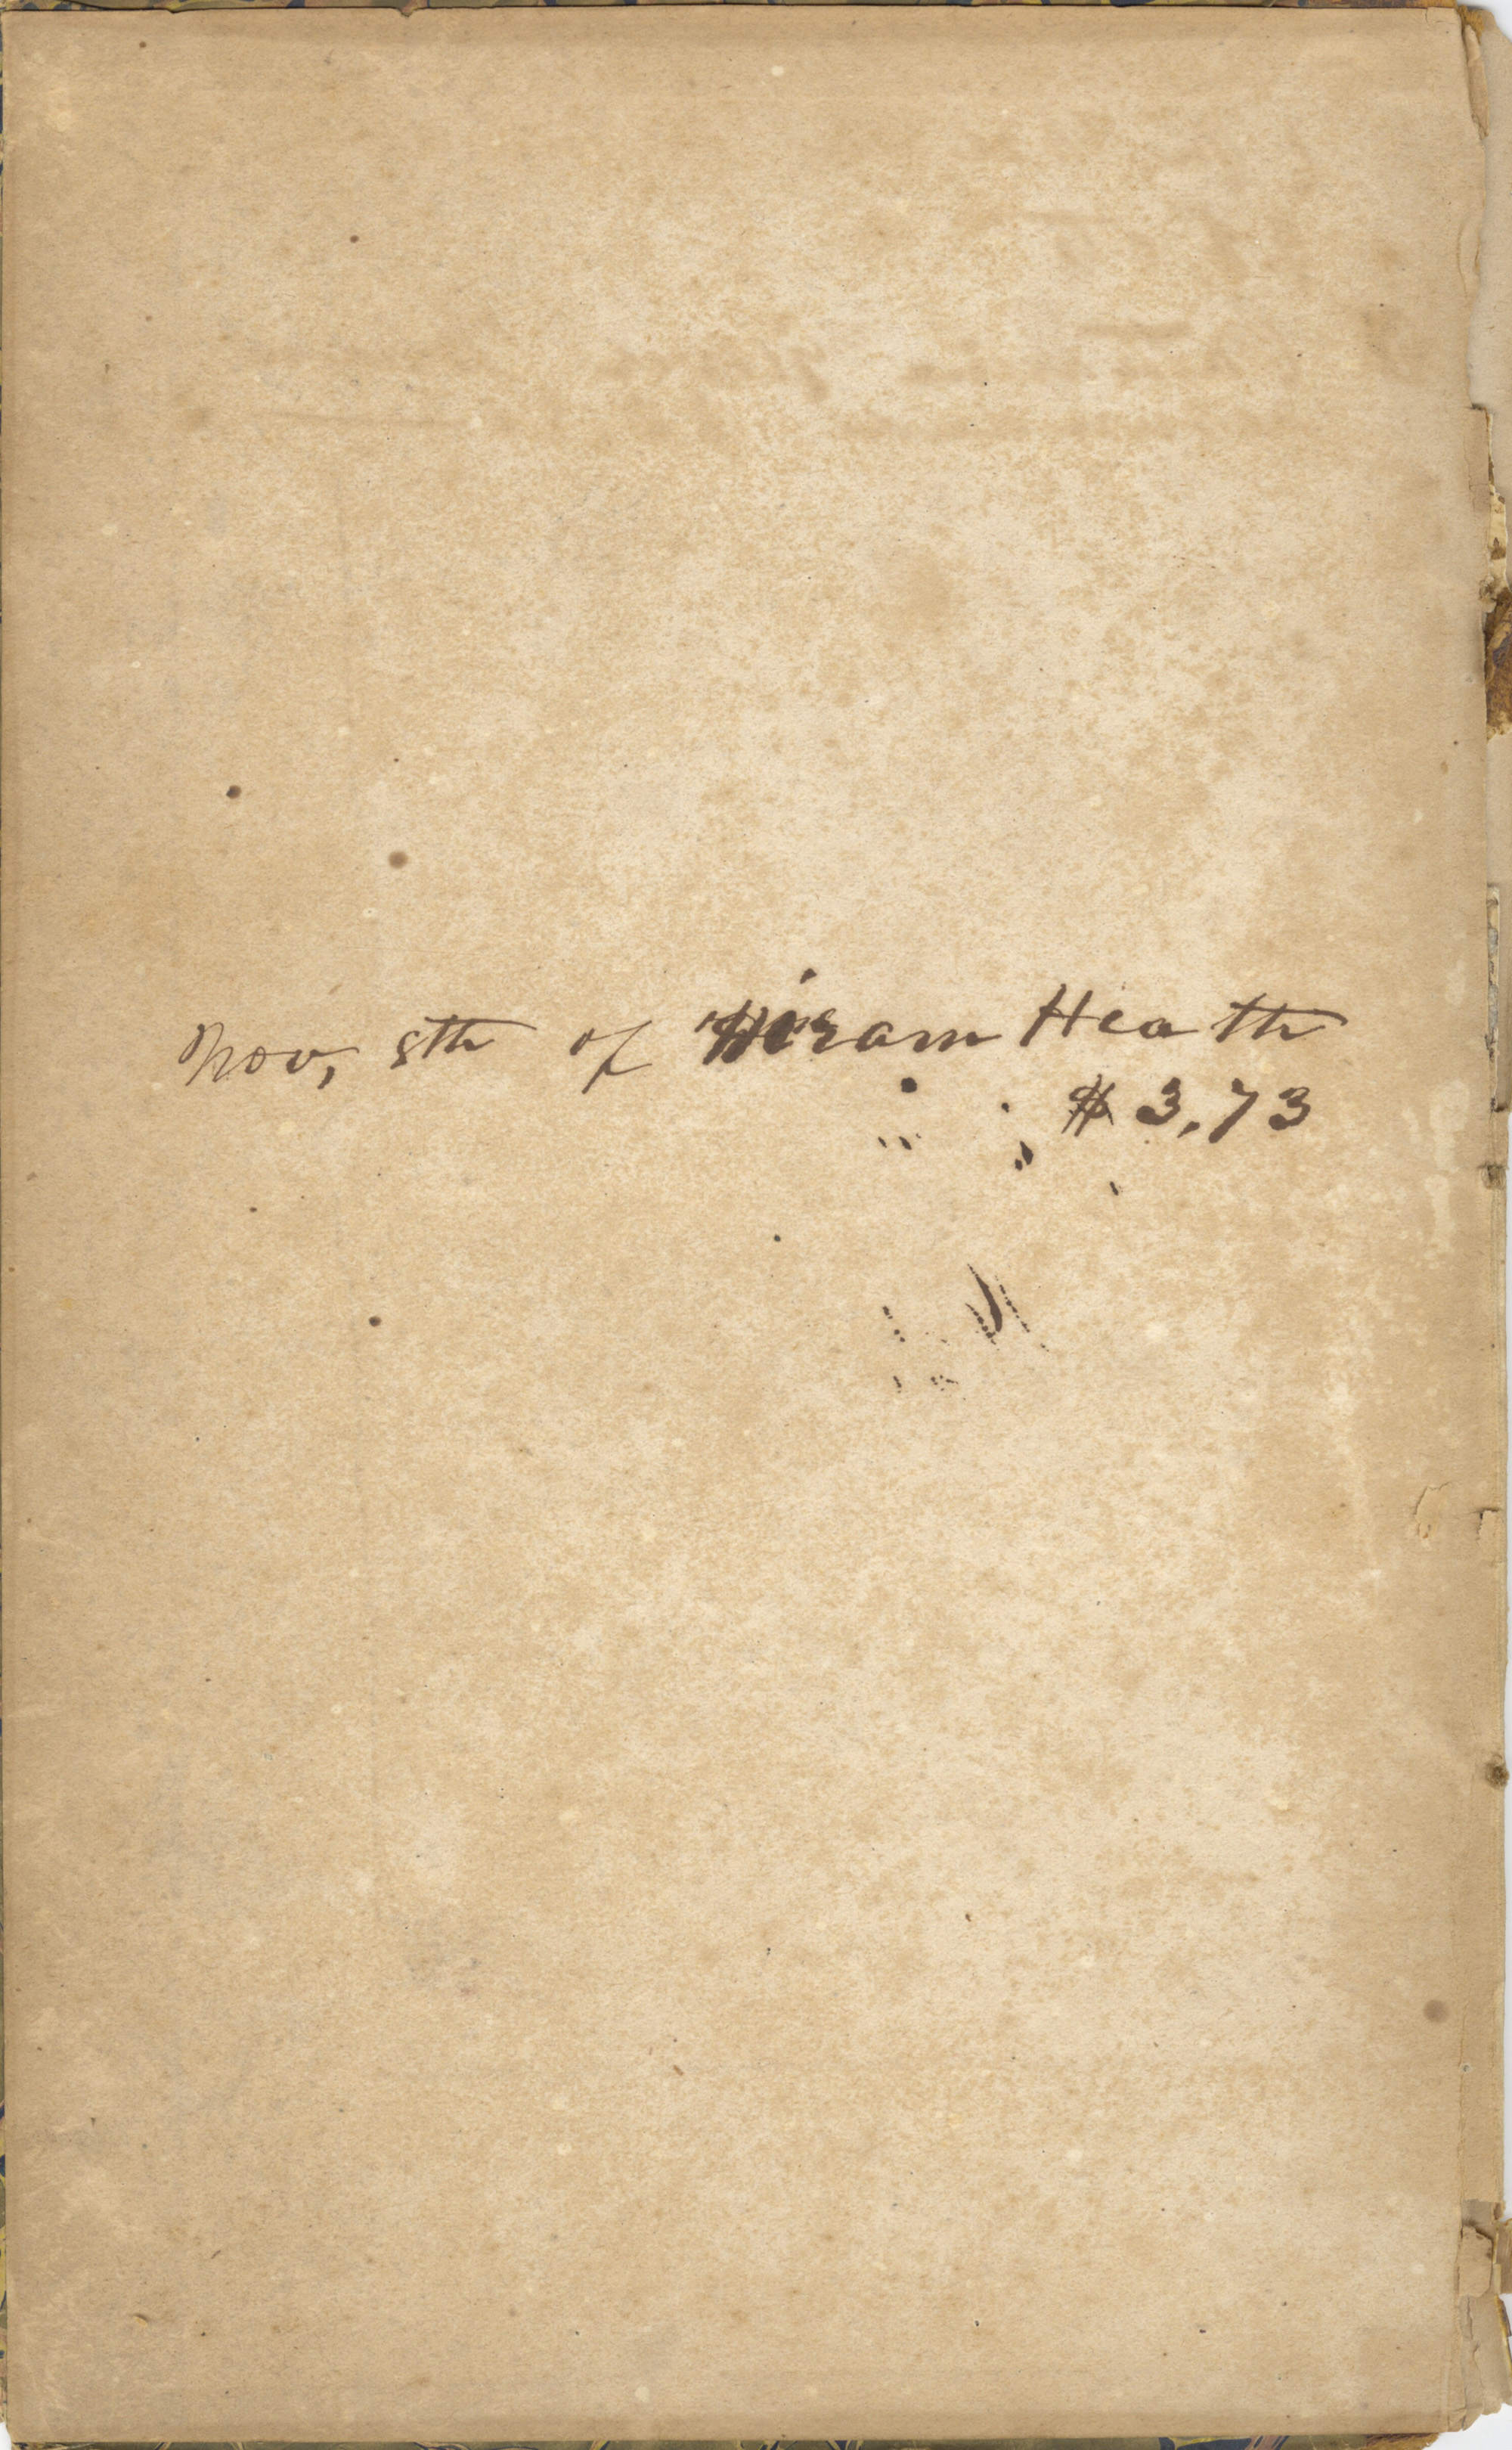 Nov, 8th of Hiram Heath
$ 3,73